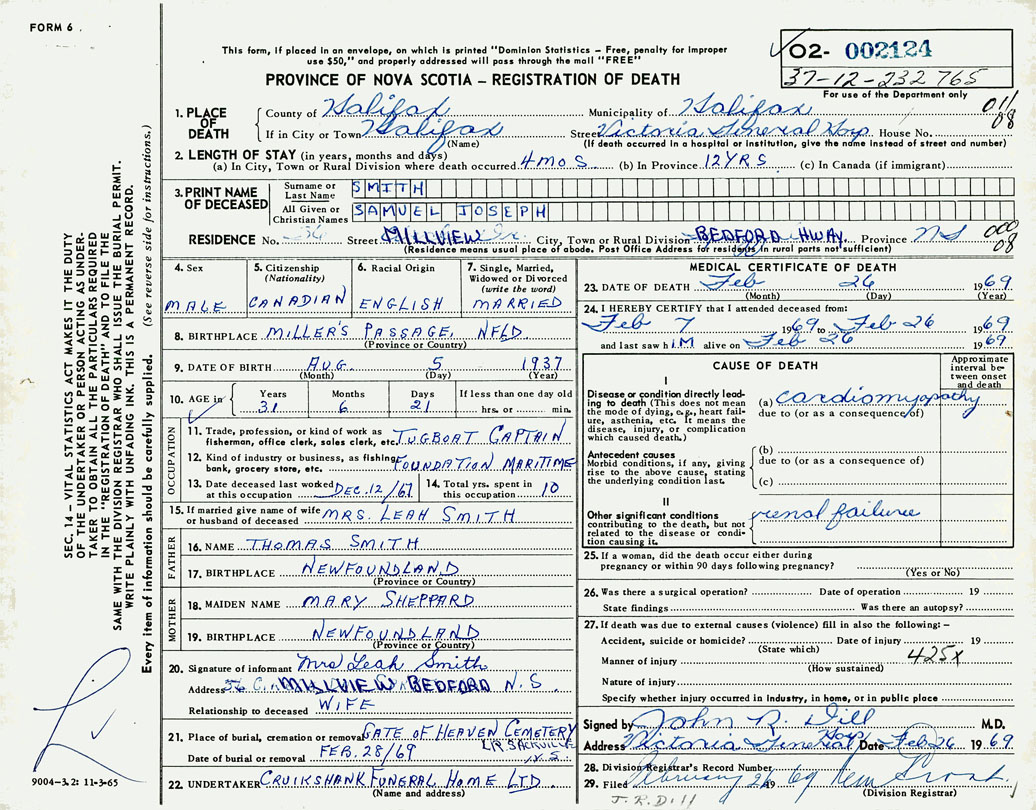 FORM 6
This form, if placed in an envelope, on which is printed "Dominion Statistics – Free, penalty for improper
use $50," and properly addressed will pass through the mail "FREE"
PROVINCE OF NOVA SCOTIA – REGISTRATION OF DEATH
02- 002124
37-12-232765
For use of the Department only
1. PLACE OF DEATH
County of Halifax Municipality of Halifax 011
08
If in City or Town Halifax Street Victoria General Hosp. House No.
(Name) (If death occurred in a hospital or institution, give the name instead of street and number)
2. LENGTH OF STAY (in years, months and days)
(a) In City, Town or Rural Division where death occurred 4 MOS. (b) In Province 12 YRS (c) In Canada (if immigrant)
3. PRINT NAME OF DECEASED
Surname or Last Name SMITH
All Given or Christian Names SAMUEL JOSEPH
RESIDENCE No. Street MILLVIEW City, Town or Rural Division BEDFORD HWAY. Province NS 000
08
(Residence means usual place of abode. Post Office Address for residents in rural parts not sufficient)
4. Sex
MALE
5. Citizenship (Nationality)
CANADIAN
6. Racial Origin
ENGLISH
7. Single, Married, Widowed or Divorced (write the word)
MARRIED
8. BIRTHPLACE MILLER'S PASSAGE, NFLD
(Province or Country)
9. DATE OF BIRTH AUG. 5 1937
(Month) (Day) (Year)
10. AGE in Years Months Days If less than one day old
31 6 21 hrs. or min.
OCCUPATION
11. Trade, profession, or kind of work as
fisherman, office clerk, sales clerk, etc. TUGBOAT CAPTAIN
12. Kind of industry or business, as fishing,
bank, grocery store, etc. FOUNDATION MARITIME
13. Date deceased last worked
at this occupation DEC.12/67
14. Total yrs. spent in
this occupation 10
15. If married give name of wife
or husband of deceased MRS. LEAH SMITH
FATHER
16. NAME THOMAS SMITH
17. BIRTHPLACE NEWFOUNDLAND
(Province or Country)
MOTHER
18. MAIDEN NAME MARY SHEPPARD
19. BIRTHPLACE NEWFOUNDLAND
(Province or Country)
20. Signature of informant Mrs Leah Smith
Address MILLVIEW BEDFORD N.S.
Relationship to deceased WIFE
21. Place of burial, cremation or removal GATE OF HEAVEN CEMETERY
LR. SACKVILLE
N.S.
Date of burial or removal FEB. 28/69
22. UNDERTAKER CRUIKSHANK FUNERAL HOME LTD.
(Name and address)
MEDICAL CERTIFICATE OF DEATH
23. DATE OF DEATH Feb 26 1969
(Month) (Day) (Year)
24. I HEREBY CERTIFY that I attended deceased from:
Feb 7 1969 to Feb 26 1969
and last saw h I.M alive on Feb 26 1969
CAUSE OF DEATH
Approximate interval between onset and death
I
Disease or condition directly leading
to death (This does not mean
the mode of dying, e.g., heart failure,
asthenia, etc. It means the
disease, injury, or complication
which caused death.)
(a) cardiomyopathy
due to (or as a consequence of)
Antecedent causes
Morbid conditions, if any, giving
rise to the above cause, stating
the underlying condition last.
(b)
due to (or as a consequence of)
(c)
II
Other significant conditions
contributing to the death, but not
related to the disease or condition
causing it.
renal failure
25. If a woman, did the death occur either during
pregnancy or within 90 days following pregnancy?
(Yes or No)
26. Was there a surgical operation? Date of operation 19
State findings Was there an autopsy?
27. If death was due to external causes (violence) fill in also the following: –
Accident, suicide or homicide? Date of injury 19
(State which)
425X
Manner of injury
(How sustained)
Nature of injury
Specify whether injury occurred in industry, in home, or in public place
Signed by John R. Dill M.D.
Address Victoria General Hosp Date Feb 26 1969
28. Division Registrar's Record Number
29. Filed February 26 1969
(Division Registrar)
J.R. Dill
SEC. 14 – VITAL STATISTICS ACT MAKES IT THE DUTY
OF THE UNDERTAKER OR PERSON ACTING AS UNDER-
TAKER TO OBTAIN ALL THE PARTICULARS REQUIRED
IN THE "REGISTRATION OF DEATH" AND TO FILE THE
SAME WITH THE DIVISION REGISTRAR WHO SHALL ISSUE THE BURIAL PERMIT.
WRITE PLAINLY WITH UNFADING INK. THIS IS A PERMANENT RECORD.
Every item of information should be carefully supplied. (See reverse side for instructions.)
9004-3.2: 11-3-65